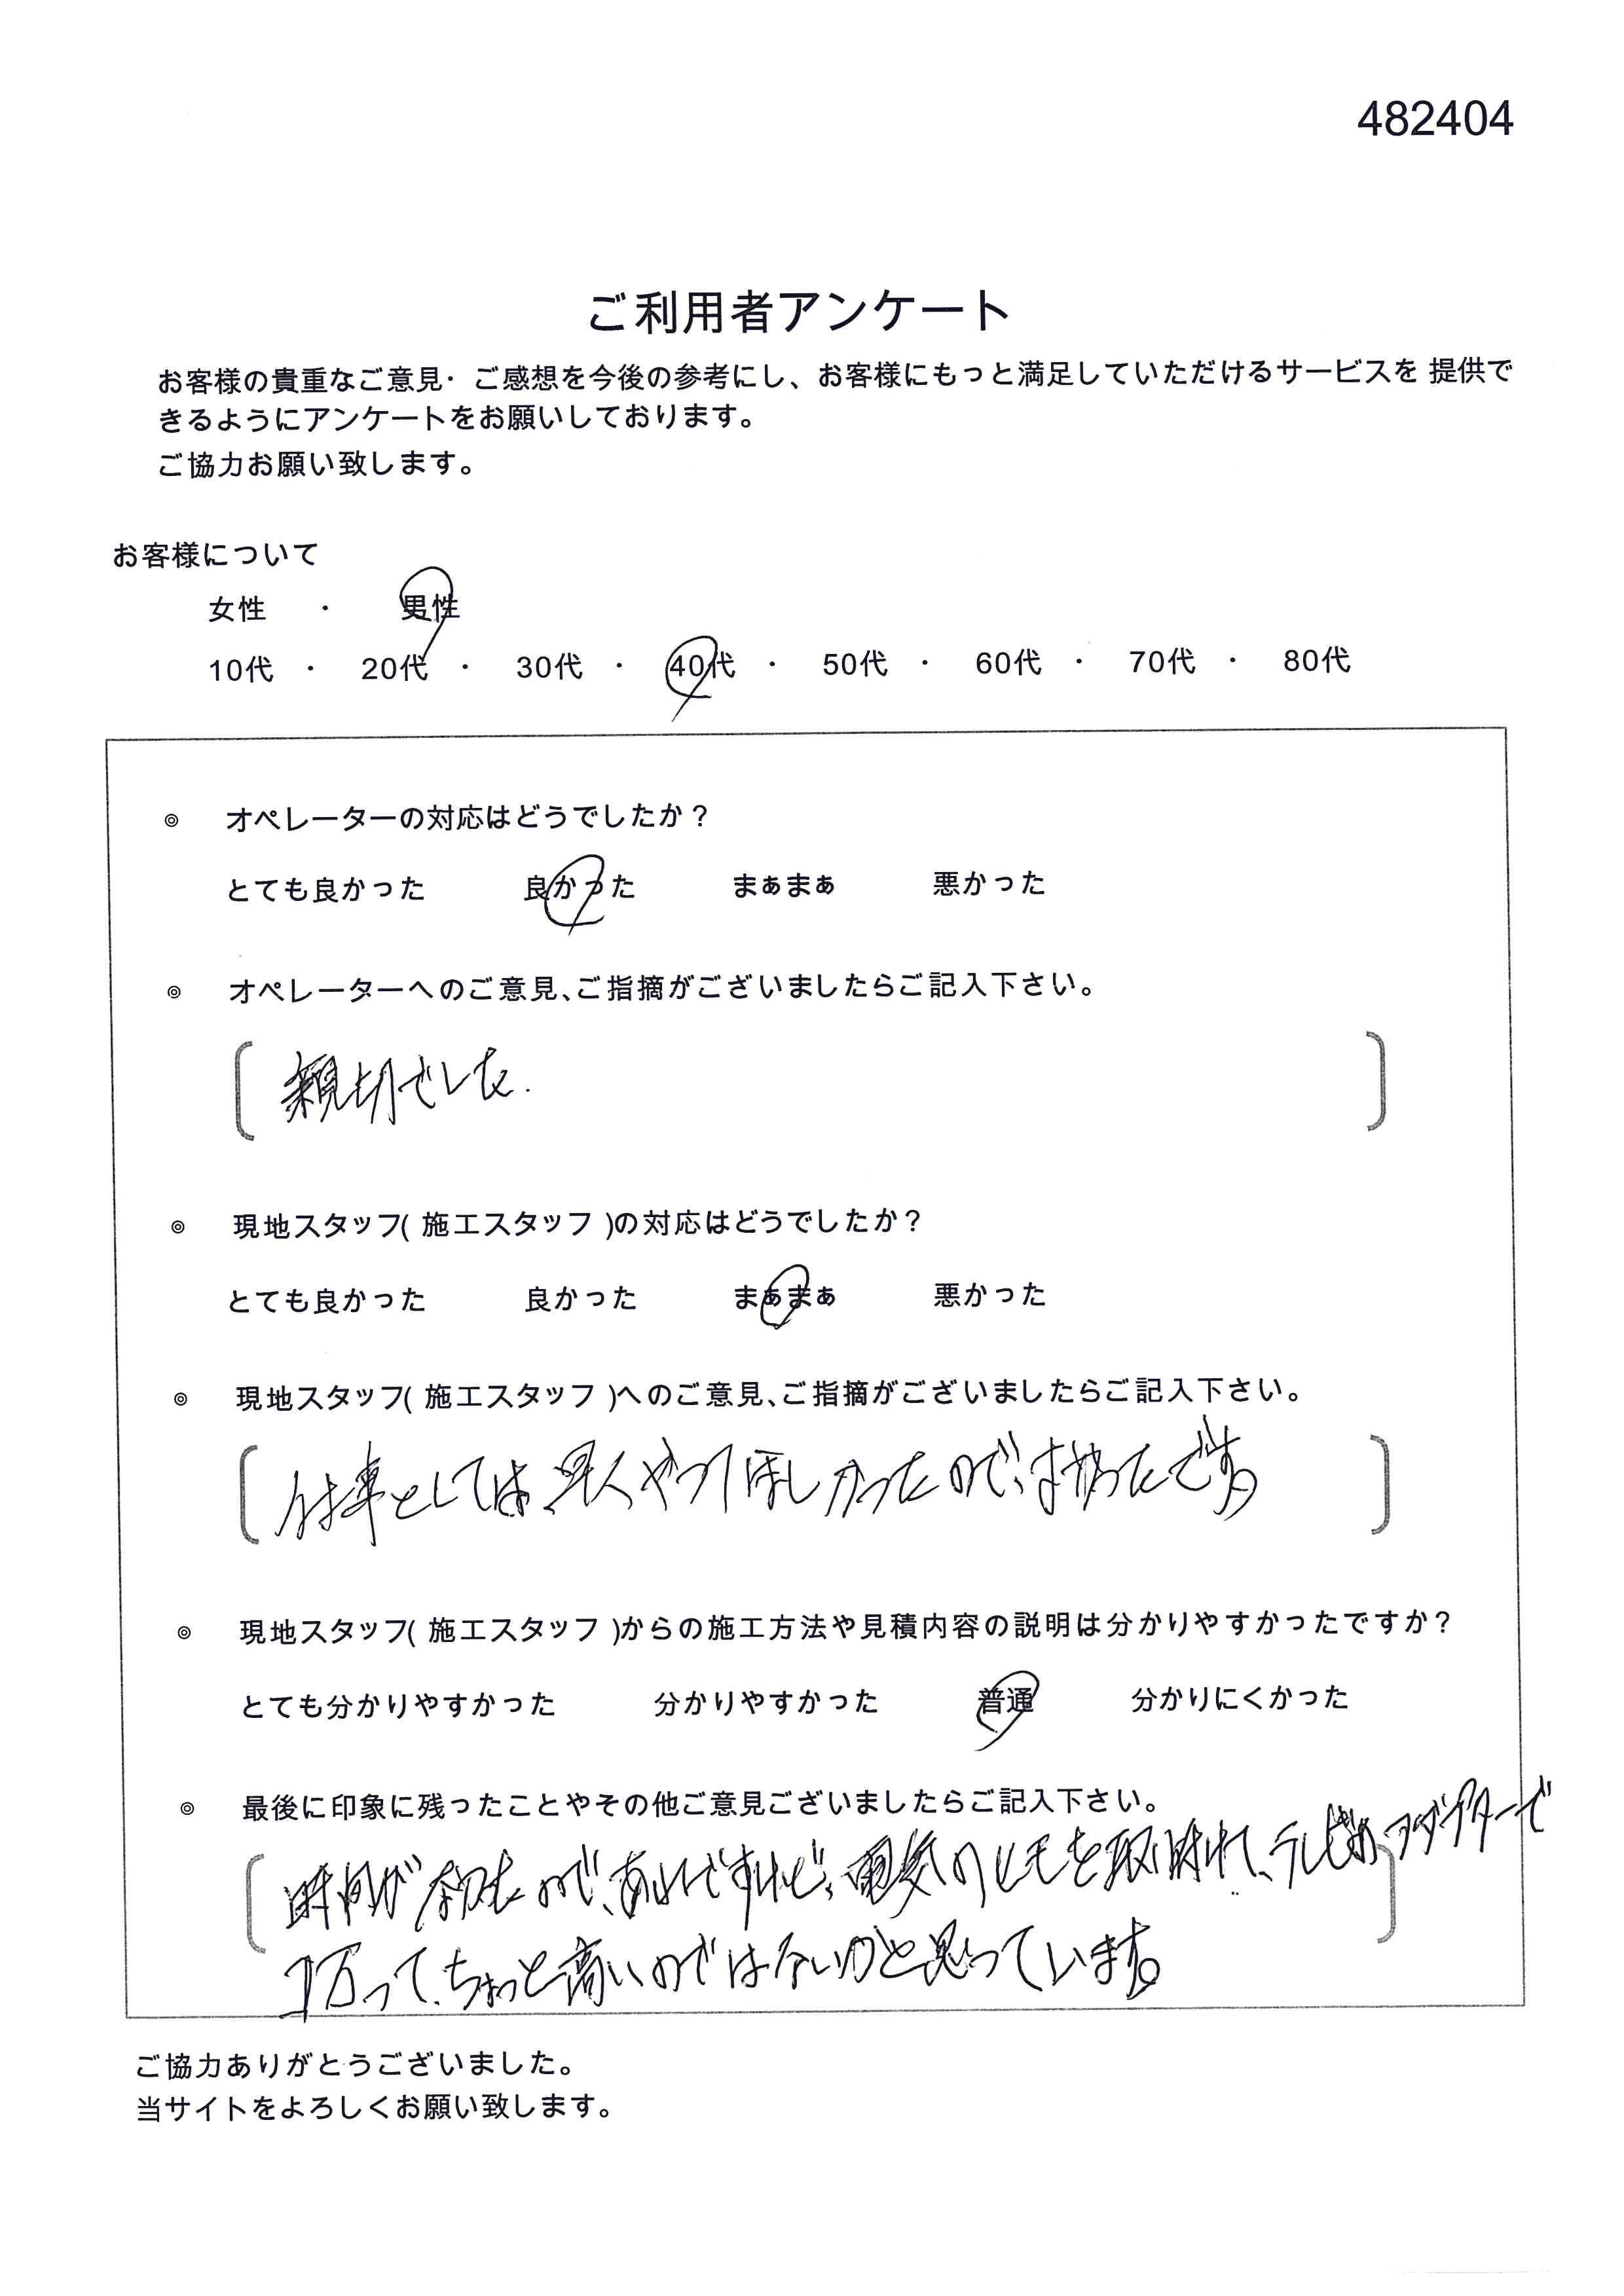 482404
ご利用者アンケート
お客様の貴重なご意見・ご感想を今後の参考にし、お客様にもっと満足していただけるサービスを 提供で
きるようにアンケートをお願いしております。
ご協力お願い致します。
お客様について
女性 ・ 男性
10代 ・ 20代 ・ 30代 ・ 40代 ・ 50代 ・ 60代 ・ 70代 ・ 80代
◎ オペレーターの対応はどうでしたか？
とても良かった 良かった まぁまぁ 悪かった
◎ オペレーターへのご意見、ご指摘がございましたらご記入下さい。
親切でした.
◎ 現地スタッフ( 施工スタッフ )の対応はどうでしたか？
とても良かった 良かった まぁまぁ 悪かった
◎ 現地スタッフ( 施工スタッフ )へのご意見、ご指摘がございましたらご記入下さい。
仕事としては、早くやってほしかったので、よかったです。
◎ 現地スタッフ( 施工スタッフ )からの施工方法や見積内容の説明は分かりやすかったですか？
とても分かりやすかった 分かりやすかった 普通 分かりにくかった
◎ 最後に印象に残ったことやその他ご意見ございましたらご記入下さい。
時間が なので、あれですけど、電気のヒモを取付けて、テレビの アダプターで
1万って、ちょっと高いのではないかと思っています。
ご協力ありがとうございました。
当サイトをよろしくお願い致します。